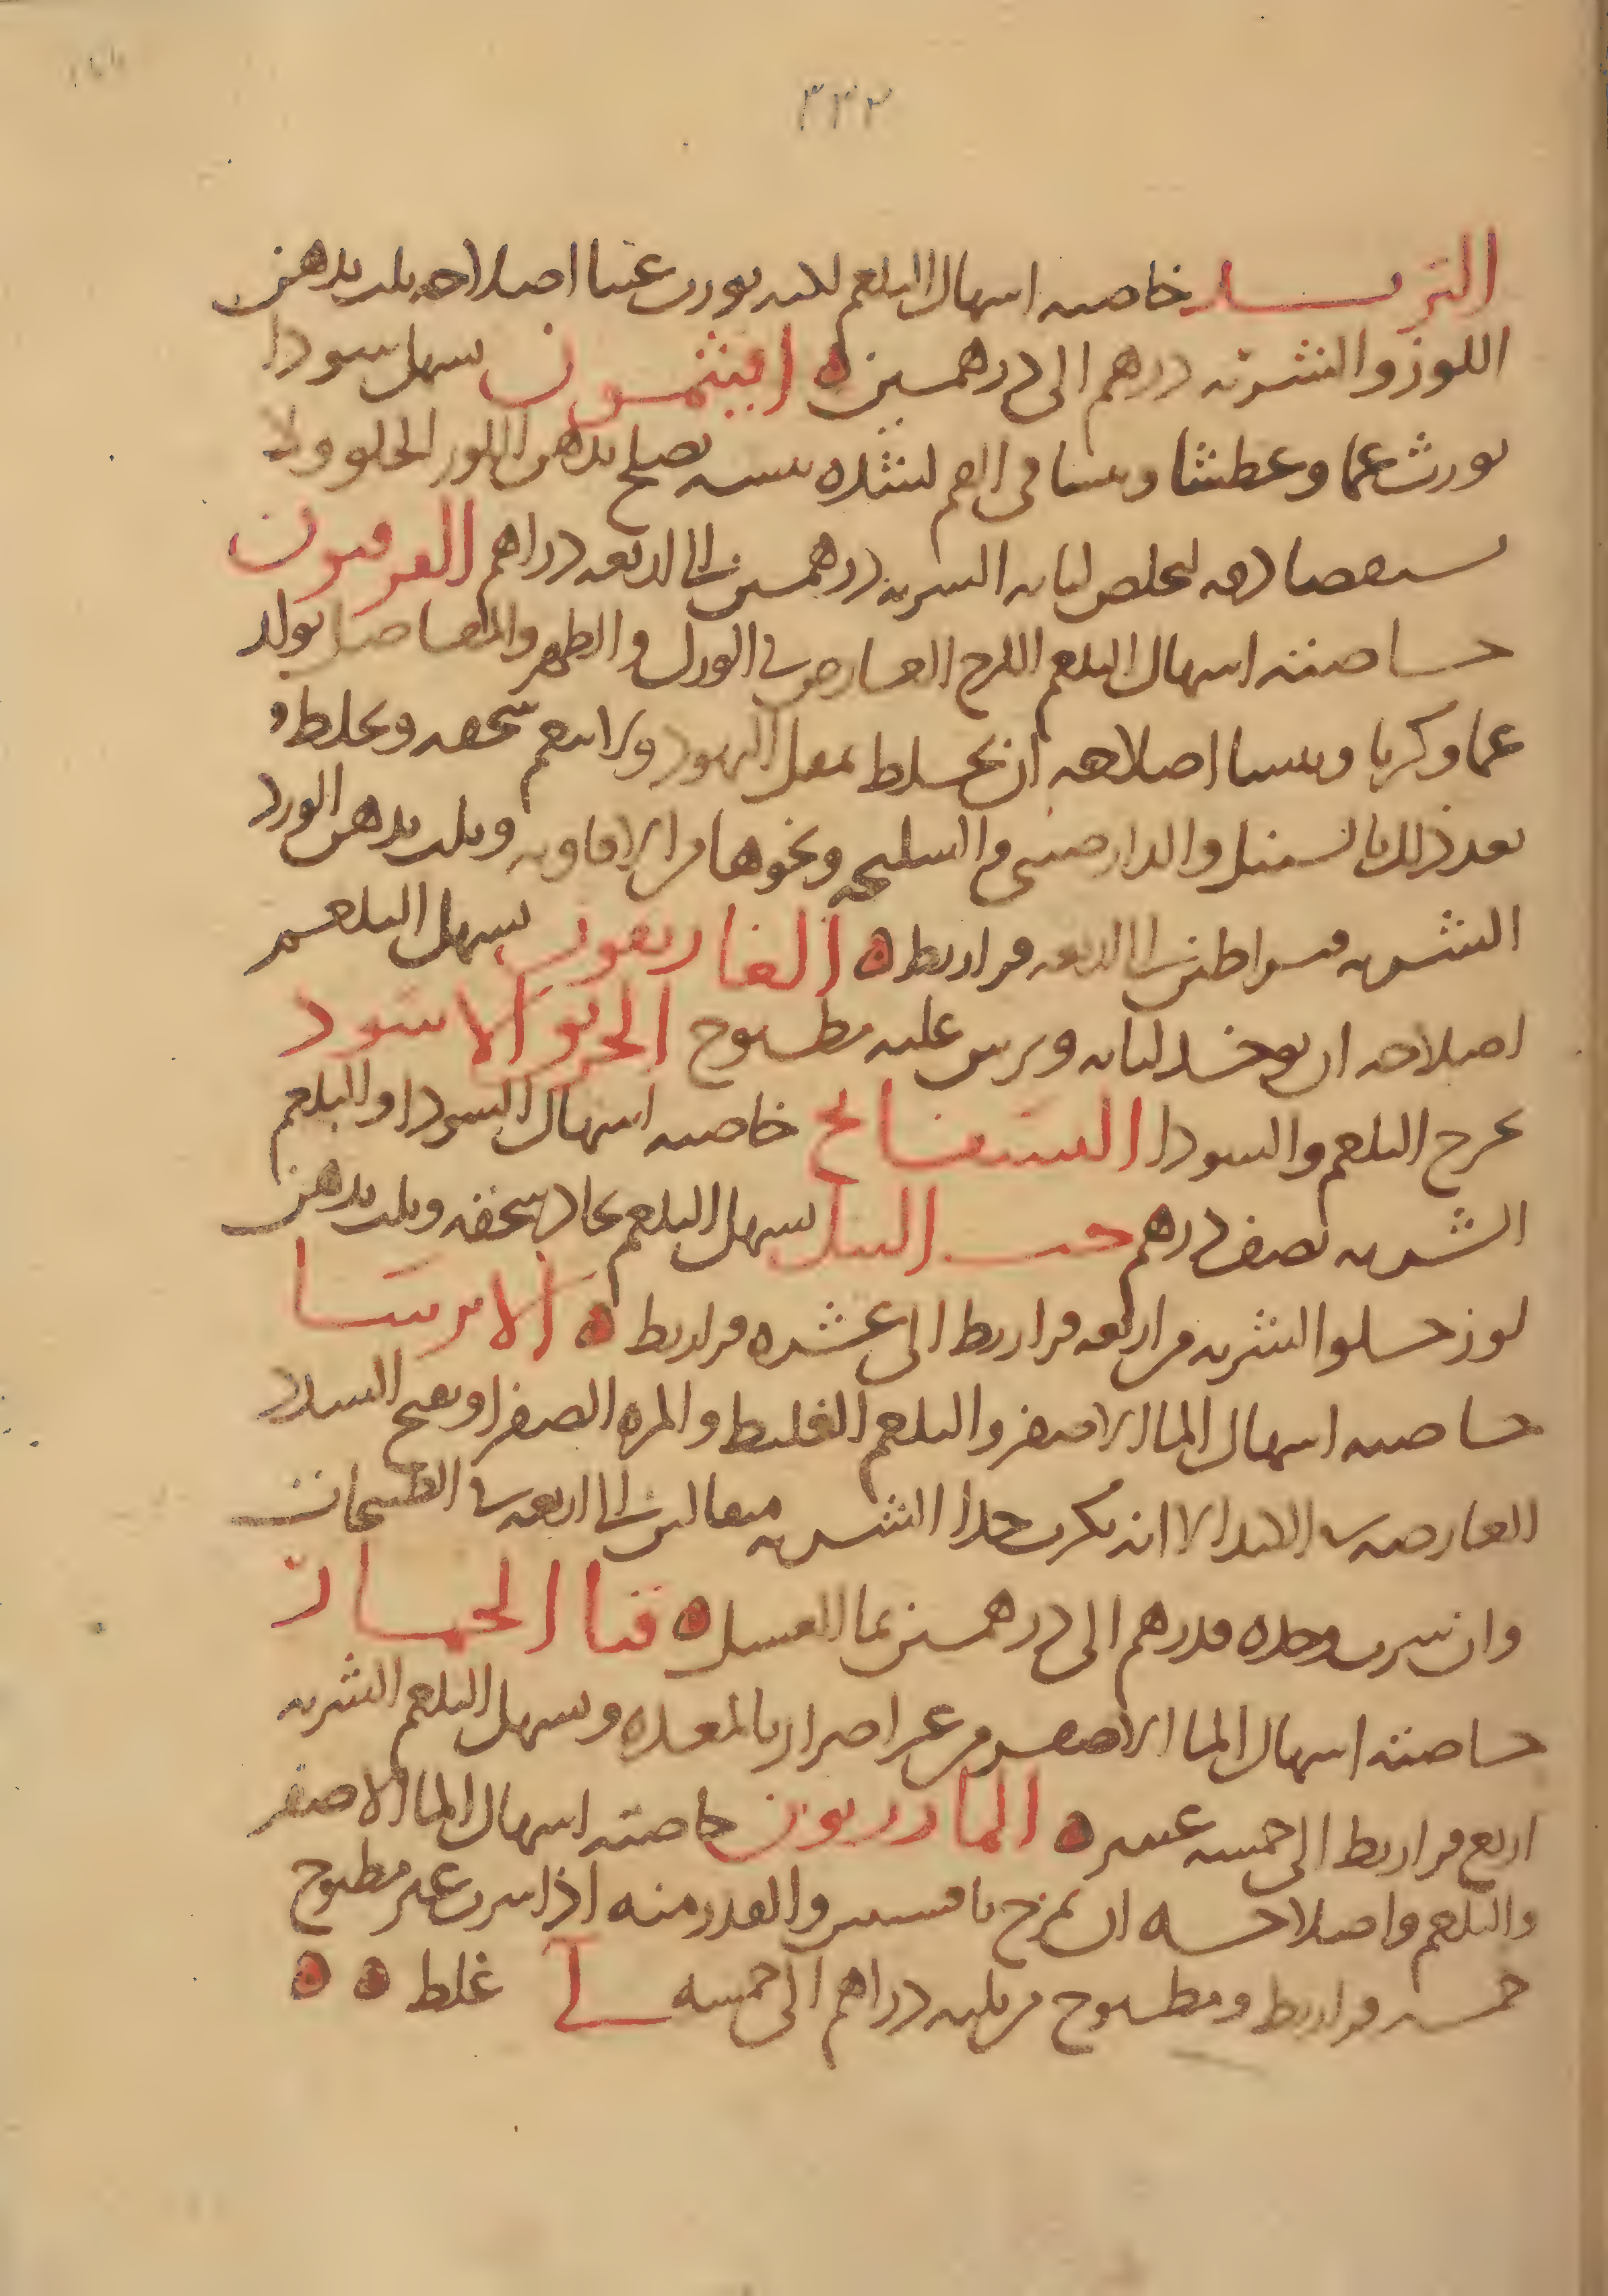 ٣٣٢
التربد خاصيه اسهال البلغم لكنه يورث غثيا اصلاحه يلت بدهن
اللوز والشربه درهم الى درهمين ه افيثمون يسهل سودا
يورث غما وعطشا ويبسا فى الفم لشده يبسه يصلح بدهن اللوز الحلو ولا
يستقصا دقه لتخلص لبابه الشربه درهمين الى اربعه دراهم الفربيون
خاصته اسهال البلغم اللزج العارض فى الورك والظهر والمفاصل يولد
غما وكربا ويبسا اصلاحه ان يخلط بمقل اليهود ولا ينعم سحقه ويخلط
بعد ذلك بالسنبل والدارصينى والسليخه ونحوها من الافاويه ويلت بدهن الورد
الشربه قيراطين الى اربعه قراريط ه الغاريقون يسهل البلغم
اصلاحه ان يوخذ لبابه ويرش عليه مطبوخ الخربق الاسود
يخرج البلغم والسودا البسفايج خاصيه اسهال السودا والبلغم
الشربه نصف درهم حب النيل يسهل البلغم يجاد سحقه ويلت بدهن
لوز حلو الشربه من اربعه قراريط الى عشره قراريط ه الايرسا
خاصيه اسهال الما الاصفر والبلغم الغليط والمره الصفرا ويفتح السدد
العارضه فى الكبد الا انه يكرب جدا الشربه مثقالين الى اربعه فى الطبيخات
وان شرب وحده فدرهم الى درهمين بما العسل ه قثا الحمار
خاصته اسهال الما الاصفر من غير اضرار بالمعده ويسهل البلغم الشربه
اربع قراريط الى خمسه عشر ه المازريون خاصته اسهال الما الاصفر
والبلغم واصلاحه ان يمزج بافسنتين والقدر منه اذا شرب غير مطبوخ
خمسه قراريط ومطبوخ من ثلثه دراهم الى خمسه غلط ه ه